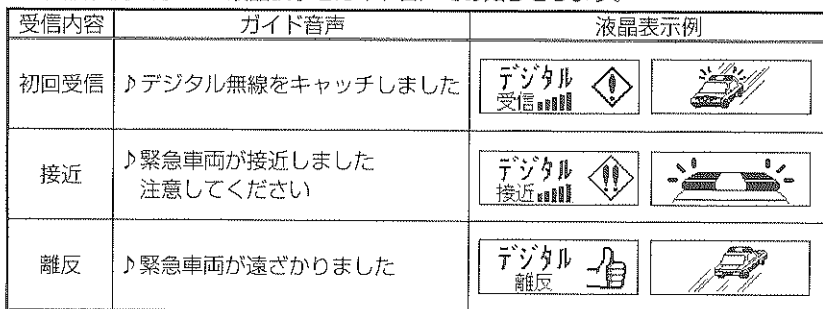 受信内容 ガイド音声 液晶表示例
初回受信 ♪デジタル無線をキャッチしました デジタル
受信
接近 ♪緊急車両が接近しました
注意してください デジタル
接近
離反 ♪緊急車両が遠ざかりました デジタル
離反